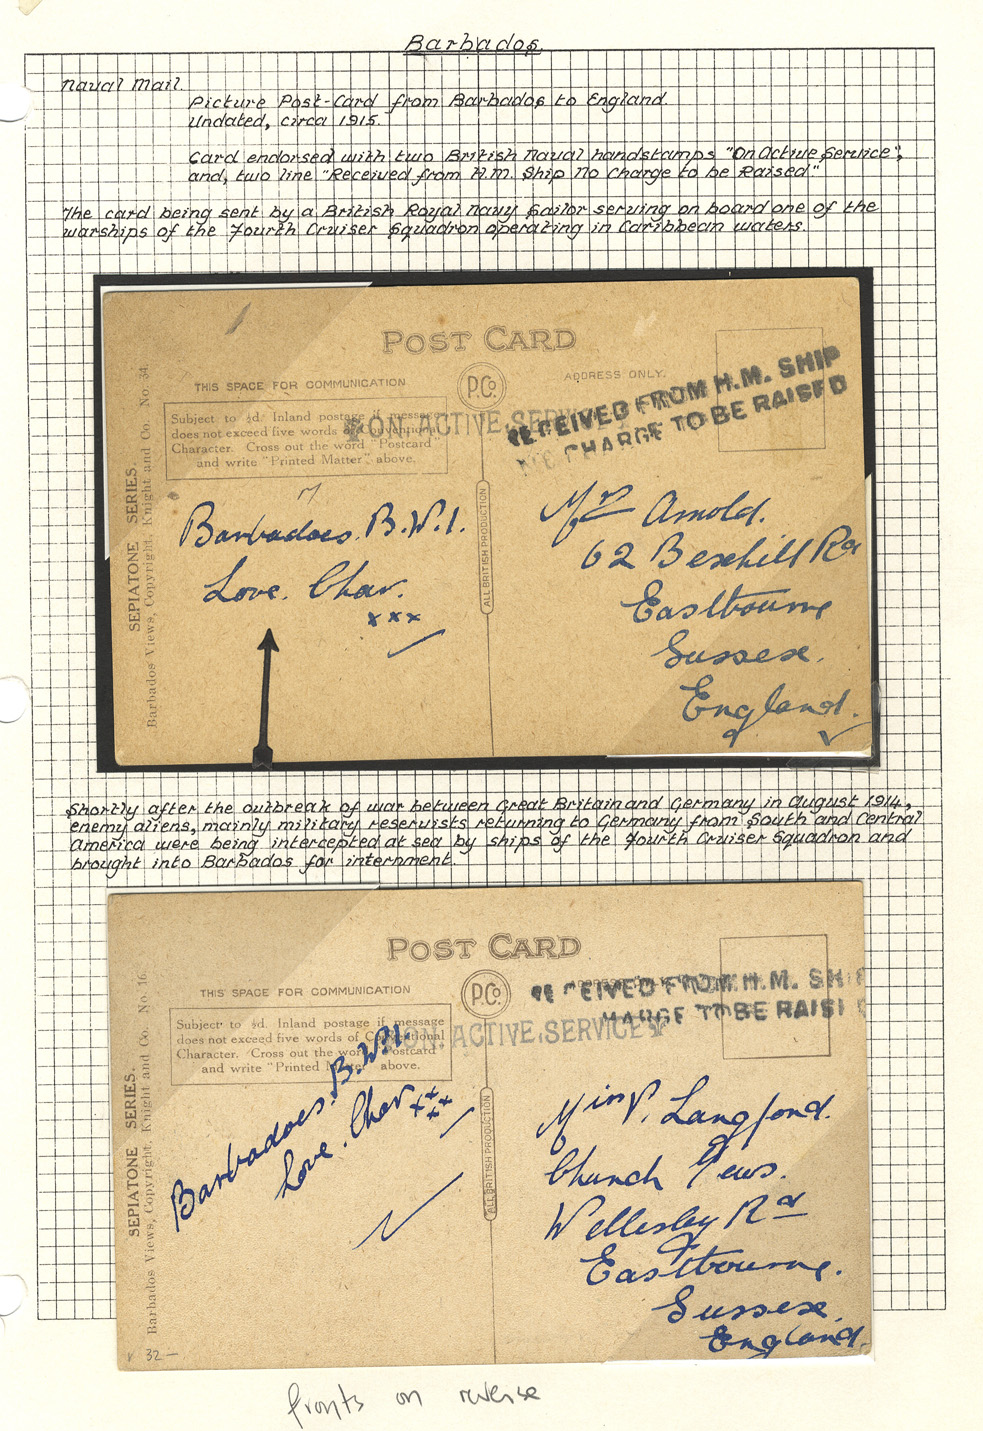 Barbados.
Naval Mail.
Picture Post-Card from Barbados to England.
Undated, circa 1915.
Card endorsed with two British Naval handstamps "On Active Service",
and, two line "Received from H.M. Ship No Charge to be Raised."
The card being sent by a British Royal Navy Sailor serving on board one of the
warships of the Fourth Cruiser Squadron operating in Caribbean waters.
POST CARD
THIS SPACE FOR COMMUNICATION
P.Co.
ADDRESS ONLY.
RECEIVED FROM H.M. SHIP
NO CHARGE TO BE RAISED
ON ACTIVE SERVICE
Subject to ½d. Inland postage if message
does not exceed five words of Conventional
Character. Cross out the word "Postcard"
and write "Printed Matter" above.
SEPIATONE SERIES.
Barbados Views, Copyright, Knight and Co. No. 34.
ALL BRITISH PRODUCTION
Barbadoes. B.W.I.
Love. Char.
xxx
Mr Arnold.
62 Bexhill Rd
Eastbourne
Sussex.
England.
Shortly after the outbreak of war between Great Britain and Germany in August 1914,
enemy aliens, mainly military reservists returning to Germany from South and Central
America were being intercepted at sea by ships of the Fourth Cruiser Squadron and
brought into Barbados for internment.
POST CARD
THIS SPACE FOR COMMUNICATION
P.Co.
RECEIVED FROM H.M. SHI
HARGE TO BE RAISE
ON ACTIVE SERVICE
Subject to ½d. Inland postage if message
does not exceed five words of Conventional
Character. Cross out the word "Postcard"
and write "Printed Matter" above.
SEPIATONE SERIES.
Barbados Views, Copyright, Knight and Co. No. 16.
ALL BRITISH PRODUCTION
Barbadoes. B.W.I.
Love. Char.
xxxx
Miss P. Langford.
Church
Wellesley Rd
Eastbourne.
Sussex.
England.
32–
fronts on reverse